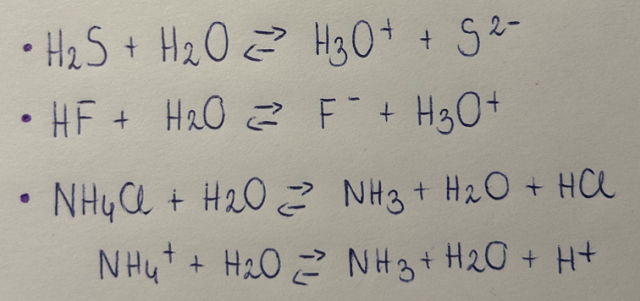 • H₂S + H₂O ⇄ H₃O⁺ + S²⁻
• HF + H₂O ⇄ F⁻ + H₃O⁺
• NH₄Cl + H₂O ⇄ NH₃ + H₂O + HCl
NH₄⁺ + H₂O ⇄ NH₃ + H₂O + H⁺